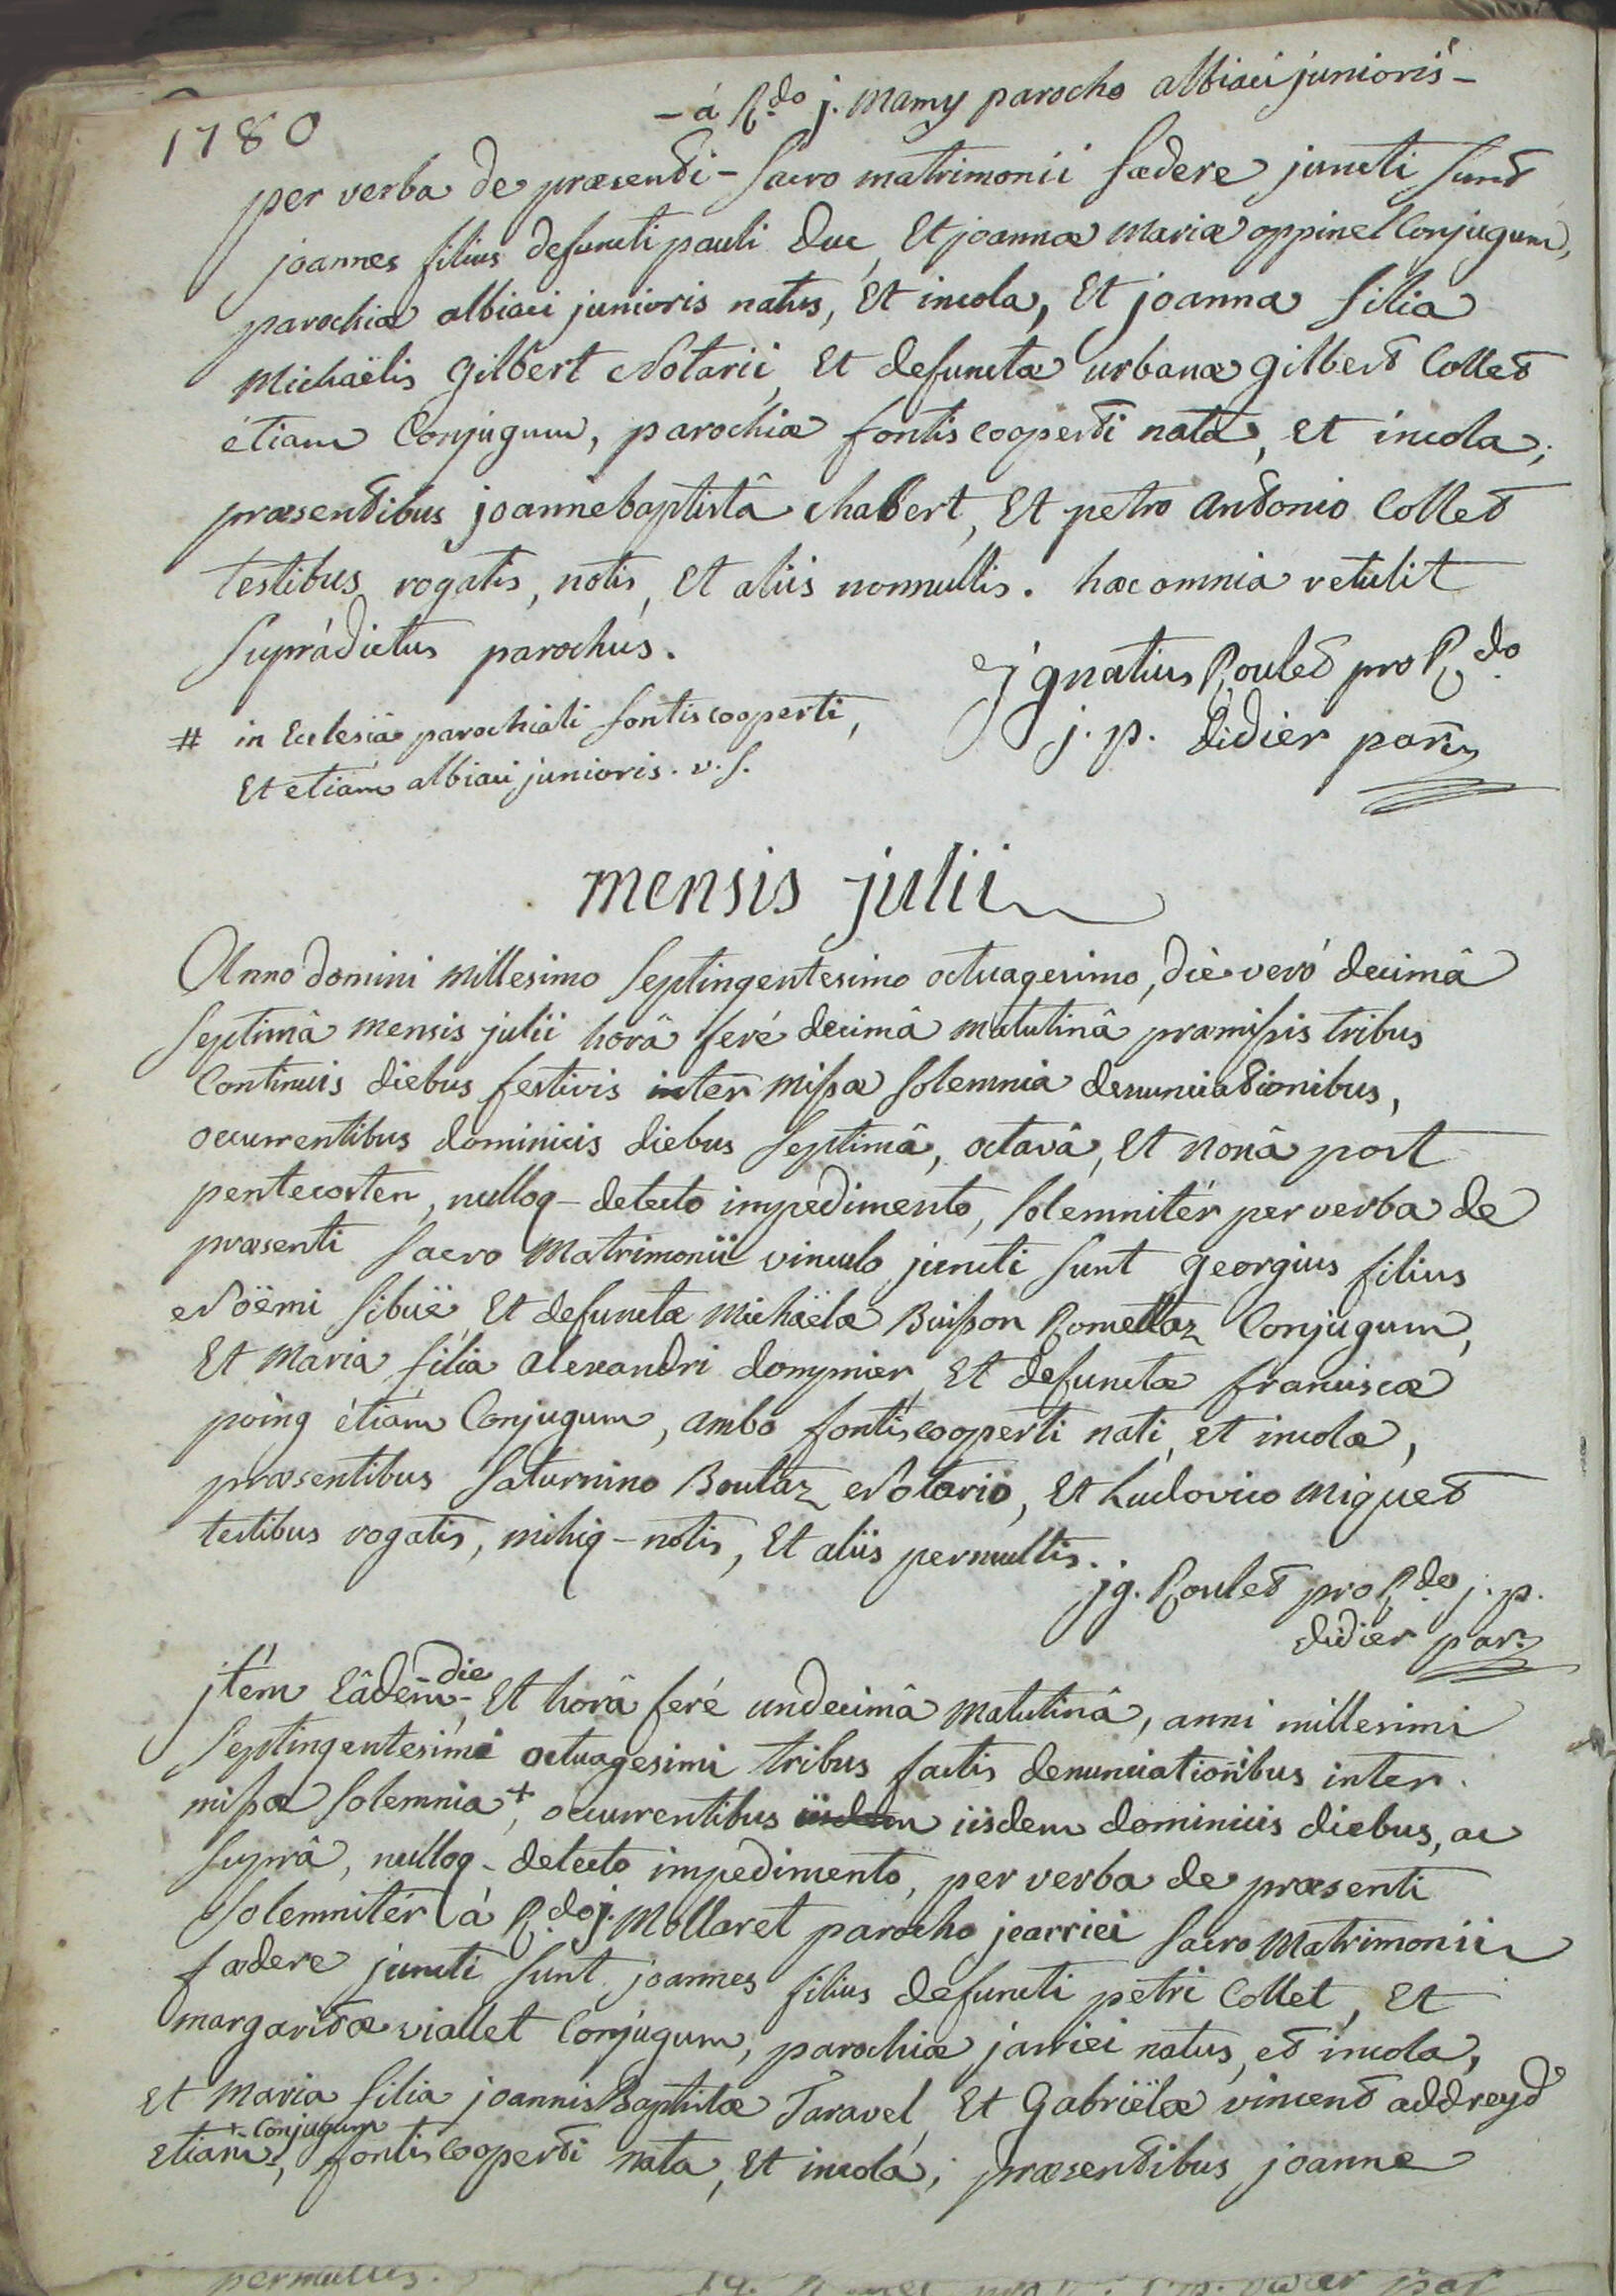 1780
- á R.do j. mamy parocho albiaci junioris -
per verba de præsenti - sacro matrimonii fædere juncti sunt
joannes filius defuncti pauli duc, Et joannæ mariæ oppinel Conjugum,
parochiæ albiaci junioris natus, Et incola, Et joanna filia
Michaëlis gilbert Notarii, Et defunctæ urbanæ gilbert Collet
étiam Conjugum, parochiæ fontiscooperti nata, et incola;
præsentibus joannebaptistâ chabert, Et petro antonio Collet
testibus rogatis, notis, Et aliis nonnullis. hæc omnia retulit
suprádictus parochus.
Ignatius Roulet pro R.do
j. p. didier par.
# in Ecclesiâ parochiali fontiscooperti,
Et etiam albiaci junioris. v. s.
mensis julii
Anno domini millesimo septingentesimo octuagesimo, die veró decimâ
septimâ mensis julii horâ feré decimâ matutinâ præmissis tribus
Continuis diebus festivis inter missæ solemnia denunciationibus,
occurrentibus dominicis diebus septimâ, octavâ, Et nonâ post
pentecosten, nulloq- detecto impedimento, solemnitér per verba de
præsenti sacro Matrimonii vinculo juncti sunt georgius filius
Noëmi sibuë Et defunctæ Michaëlæ Buisson Romettaz Conjugum,
Et Maria filia alexandri dompnier, Et defunctæ franciscæ
poing étiam Conjugum, ambo fontiscooperti nati, et incolæ,
præsentibus saturnino Boutaz Notario, Et Ludovico miguet
testibus rogatis, mihiq- notis, Et aliis permultis.
jg. Roulet pro R.do j. p.
didier par.
jtém Eâdem die, Et horâ feré undecimâ matutinâ, anni millesimi
septingentesimi octuagesimi tribus factis denunciationibus inter
missæ solemnia +, occurrentibus iisdem dominicis diebus, ac
suprâ, nulloq- detecto impedimento, per verba de præsenti
solemnitér á R.do j. Mollaret parocho jarriei sacro Matrimonii
fædere juncti sunt joannes filius defuncti petri Collet, Et
margaritæ viallet Conjugum, parochiæ jarriei natus, et incola,
Et Maria filia joannisBaptistæ Taravel, Et Gabriëlæ vincent addreyt
etiam + Conjugum, fontiscooperti nata, Et incola; præsentibus joanne
permultis.